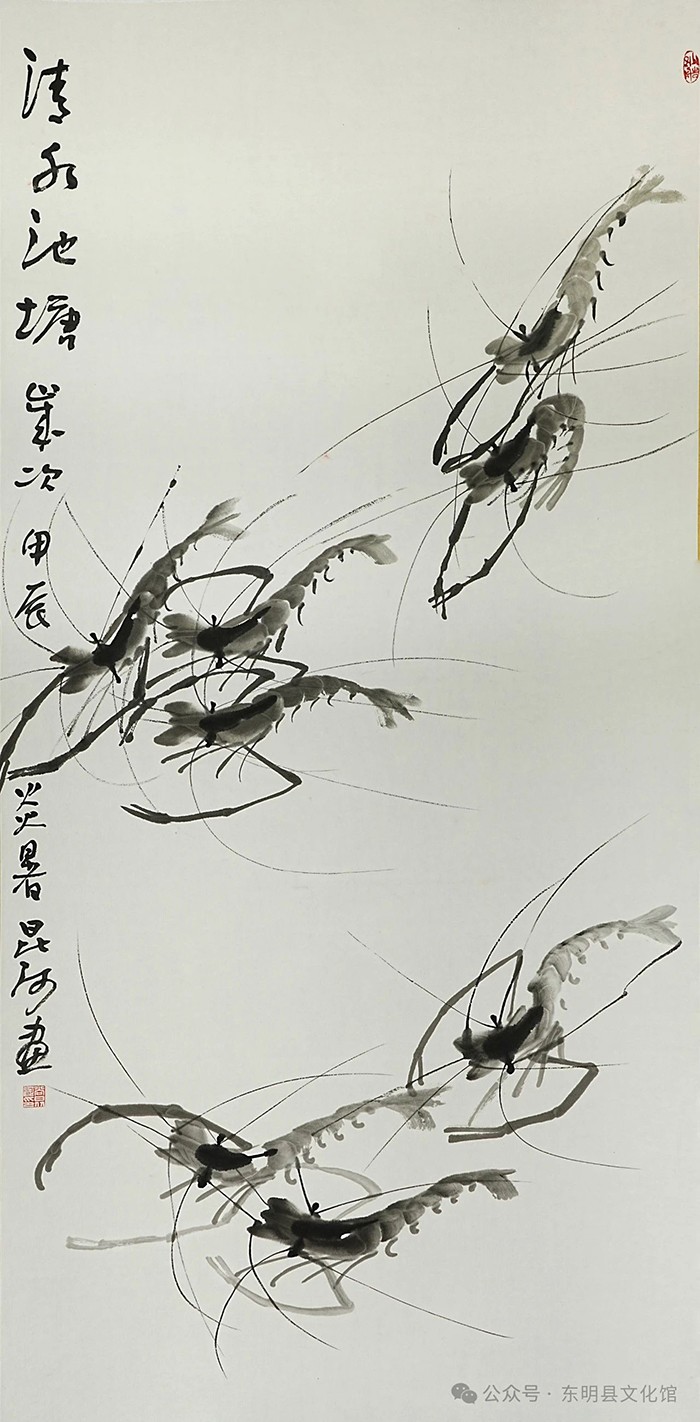 清水池塘 岁次甲辰炎暑昆河画
公众号 · 东明县文化馆